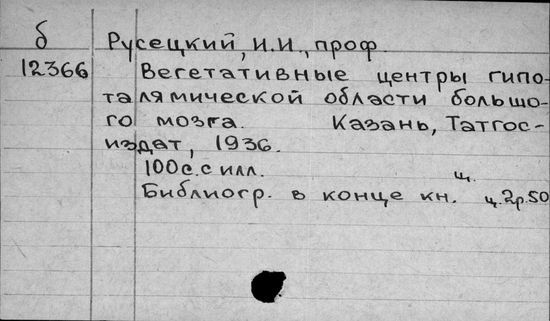 б Русецкий, И.И., проф.
12366 Вегетативные центры гипо-
талямической области большо-
го мозга. Казань, Татгос-
издат, 1936.
100с. с илл. щ.
Библиогр. в конце кн. ц. 2р.50